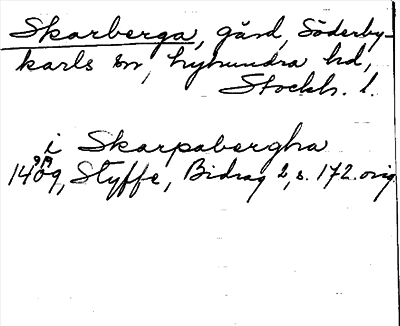 Skarberga, gård, Söderby-
karls sn, Lyhundra hd,
Stockh. l.
i Skarpabergha
1409, Styffe, Bidrag 2, s. 172. orig